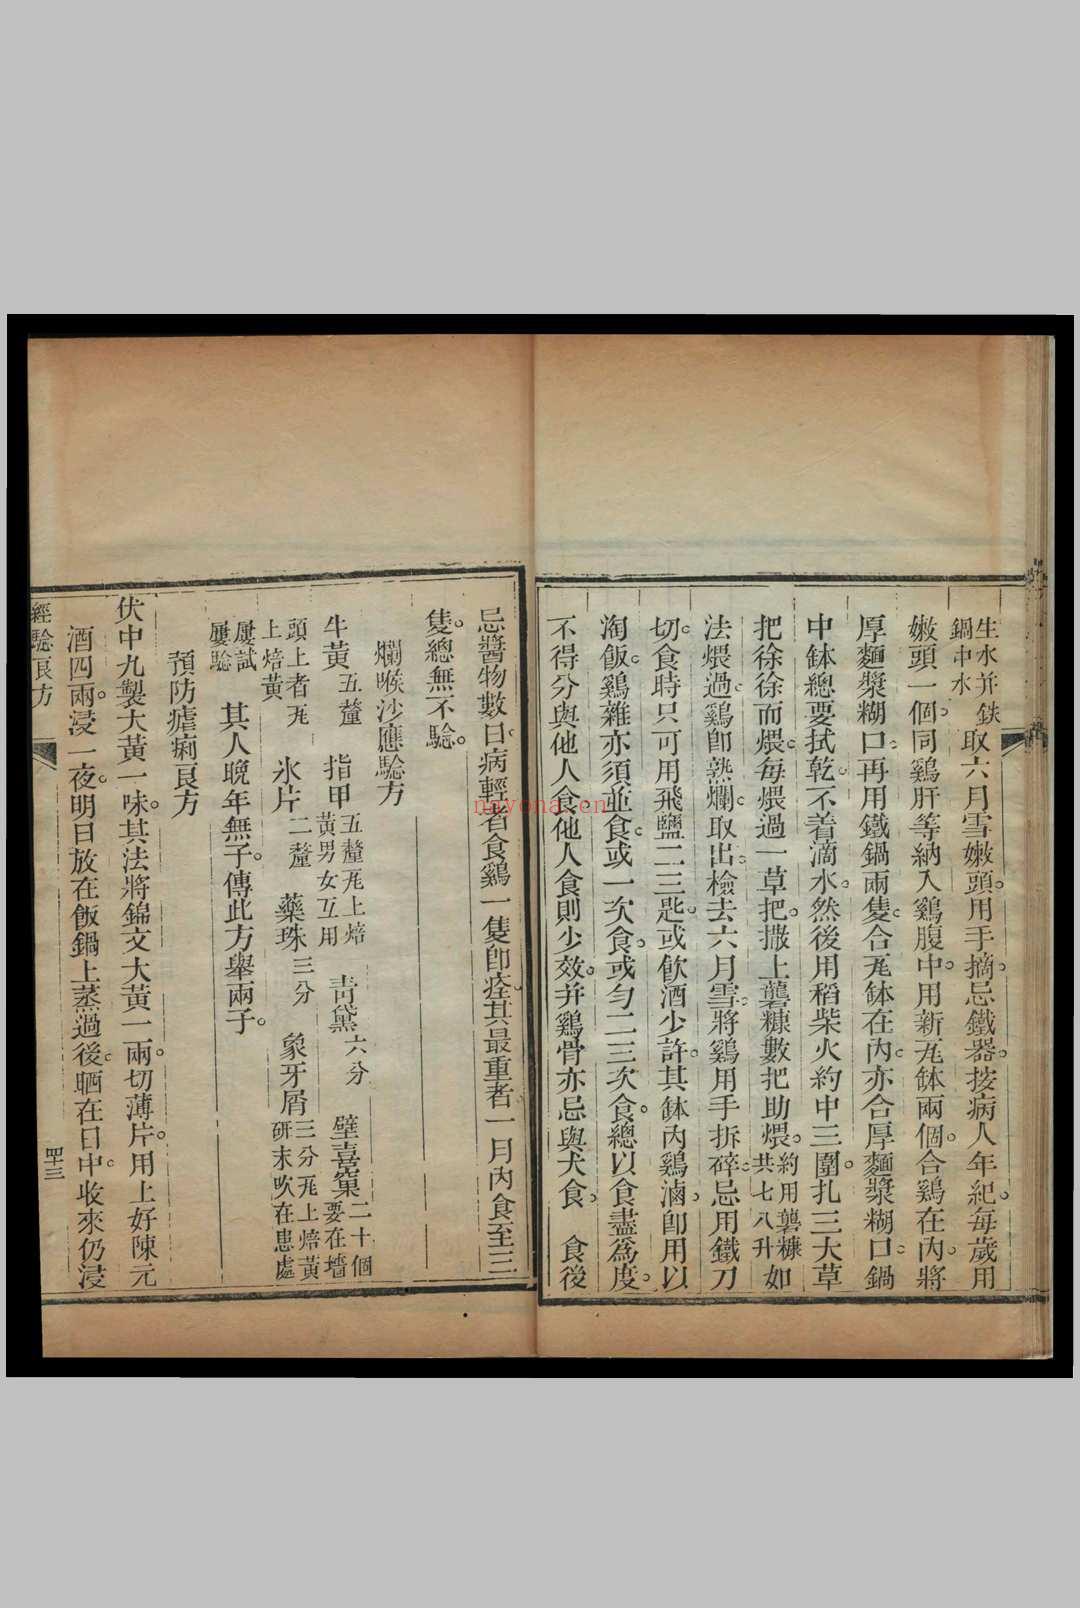 生水并鉄
鍋中水
取六月雪嫩頭。用手摘。忌鐵器。按病人年紀。每歲用
嫩頭一個。同鷄肝等納入鷄腹中。用新瓦缽兩個。合鷄在內。將
厚麵漿糊口。再用鐵鍋兩隻。合瓦缽在內。亦合厚麵漿糊口。鍋
中缽總要拭乾。不着滴水。然後用稻柴火約中三圍。扎三大草
把。徐徐而煨。每煨過一草把。撒上礱糠數把助煨。
約用礱糠
共七八升
如
法煨過。鷄卽熟爛。取出。檢去六月雪。將鷄用手拆碎。忌用鐵刀
切。食時只可用飛鹽二三匙。或飲酒少許。其缽內鷄滷。卽用以
淘飯。鷄雜亦須並食。或一次食。或勻二三次食。總以食盡爲度。
不得分與他人食。他人食則少效。并鷄骨亦忌與犬食。 食後
忌醬物數日。病輕者食鷄一隻卽痊。其最重者一月內食至三
隻。總無不驗。
爛喉沙應驗方
牛黃五釐
指甲
五釐瓦上焙
黃男女互用
青黛六分
壁喜窠
二十個
要在墻
頭上者瓦
上焙黃
氷片二釐
藥珠三分
象牙屑
三分瓦上焙黃
研末吹在患處
屢試
屢驗
其人晚年無子。傳此方。舉兩子。
預防瘧痢良方
伏中九製大黃一味。其法將錦文大黃一兩。切薄片。用上好陳元
酒四兩。浸一夜。明日放在飯鍋上蒸過後。晒在日中。收來仍浸
經驗良方
四十三
nayona.cn